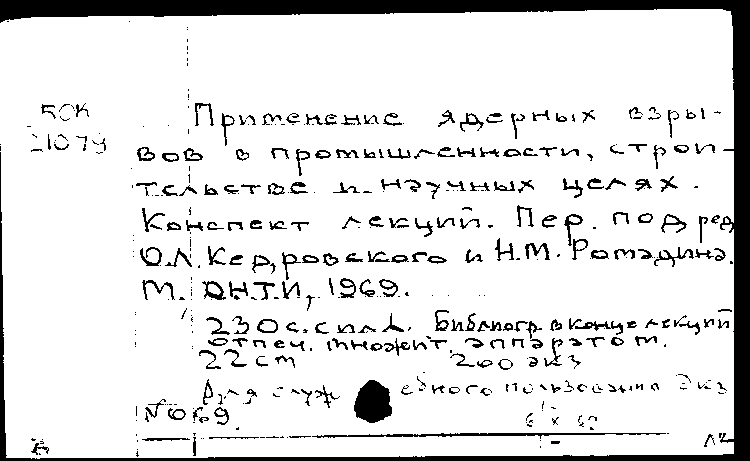 50К
21079
Применение ядерных взры-
вов в промышленности, строи-
тельстве и научных целях.
Конспект лекций. Пер. под ред
О.Л. Кедровского и Н.М. Ромадина.
М. ОНТИ, 1969.
230 с. с илл. Библиогр. в конце лекций
отпеч. множит. аппаратом.
22 cm 200 экз
Для служебного пользования Экз
№ 69.